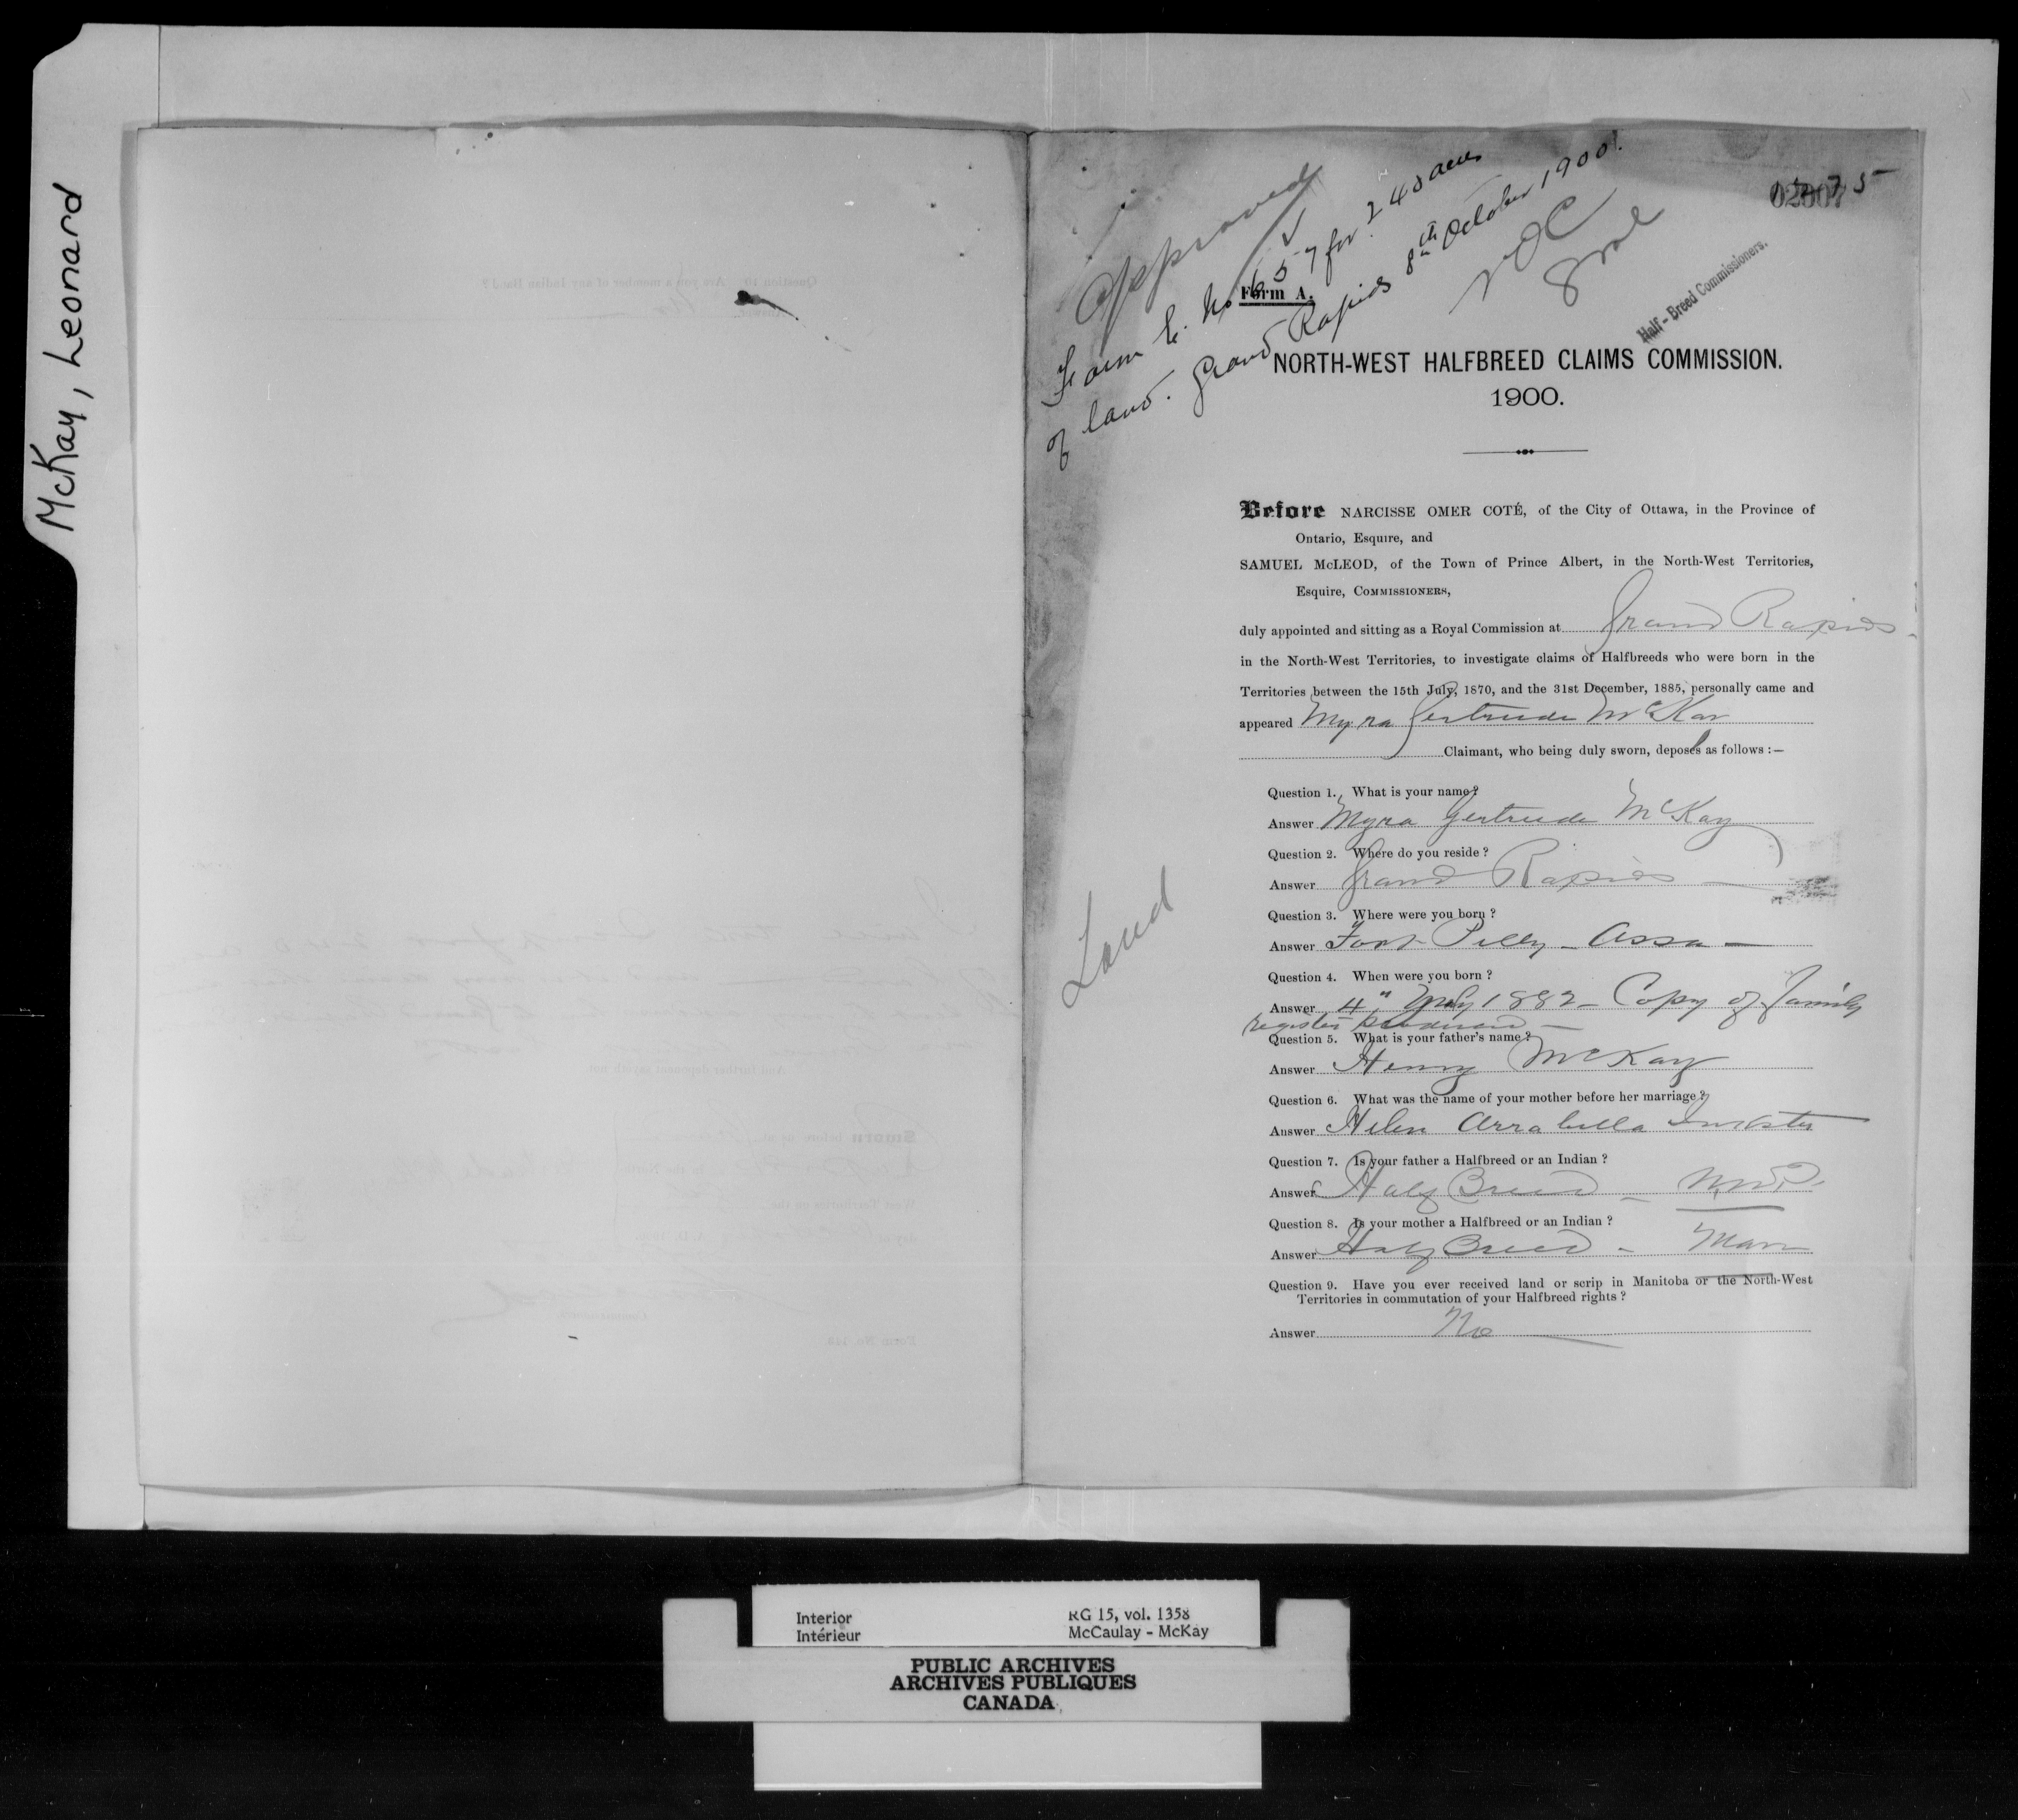 McKay, Leonard
Approved
Form E. No 657 for 240 acres
of land. Grand Rapids 8th October 1900.
NOC
Half-Breed Commissioners.
Form A.
NORTH-WEST HALFBREED CLAIMS COMMISSION.
1900.
Before NARCISSE OMER COTÉ, of the City of Ottawa, in the Province of
Ontario, Esquire, and
SAMUEL McLEOD, of the Town of Prince Albert, in the North-West Territories,
Esquire, COMMISSIONERS,
duly appointed and sitting as a Royal Commission at Grand Rapids
in the North-West Territories, to investigate claims of Halfbreeds who were born in the
Territories between the 15th July, 1870, and the 31st December, 1885, personally came and
appeared Myra Gertrude McKay
Claimant, who being duly sworn, deposes as follows :—
Question 1. What is your name?
Answer Myra Gertrude McKay
Question 2. Where do you reside ?
Answer Grand Rapids —
Question 3. Where were you born ?
Answer Fort Pelly - Assa —
Question 4. When were you born ?
Answer 4" 1882 - Copy of family
register produced —
Question 5. What is your father's name?
Answer Henry McKay
Question 6. What was the name of your mother before her marriage?
Answer Helen Arrabella Inkster
Question 7. Is your father a Halfbreed or an Indian ?
Answer Half Breed - N.W.T.
Question 8. Is your mother a Halfbreed or an Indian ?
Answer Half Breed - Man
Question 9. Have you ever received land or scrip in Manitoba or the North-West
Territories in commutation of your Halfbreed rights ?
Answer No
Land
Interior
Intérieur
RG 15, vol. 1358
McCaulay - McKay
PUBLIC ARCHIVES
ARCHIVES PUBLIQUES
CANADA